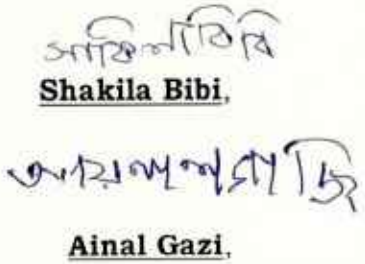 সাকিলা বিবি
Shakila Bibi,
আয়নাল গাজি
Ainal Gazi,